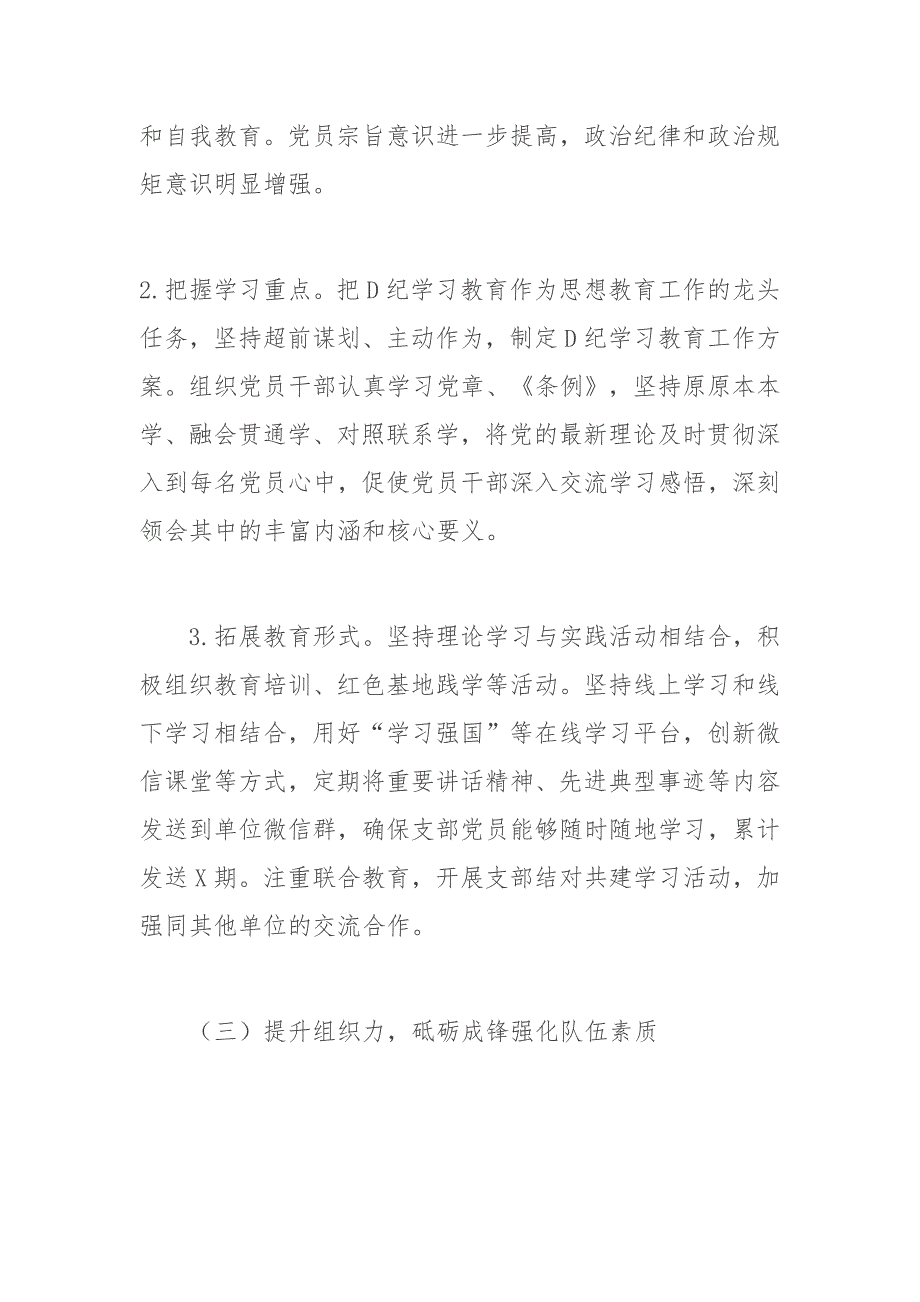 和自我教育。党员宗旨意识进一步提高，政治纪律和政治规
矩意识明显增强。
2.把握学习重点。把 D 纪学习教育作为思想教育工作的龙头
任务，坚持超前谋划、主动作为，制定 D 纪学习教育工作方
案。组织党员干部认真学习党章、《条例》，坚持原原本本
学、融会贯通学、对照联系学，将党的最新理论及时贯彻深
入到每名党员心中，促使党员干部深入交流学习感悟，深刻
领会其中的丰富内涵和核心要义。
3.拓展教育形式。坚持理论学习与实践活动相结合，积
极组织教育培训、红色基地践学等活动。坚持线上学习和线
下学习相结合，用好“学习强国”等在线学习平台，创新微
信课堂等方式，定期将重要讲话精神、先进典型事迹等内容
发送到单位微信群，确保支部党员能够随时随地学习，累计
发送 X 期。注重联合教育，开展支部结对共建学习活动，加
强同其他单位的交流合作。
（三）提升组织力，砥砺成锋强化队伍素质